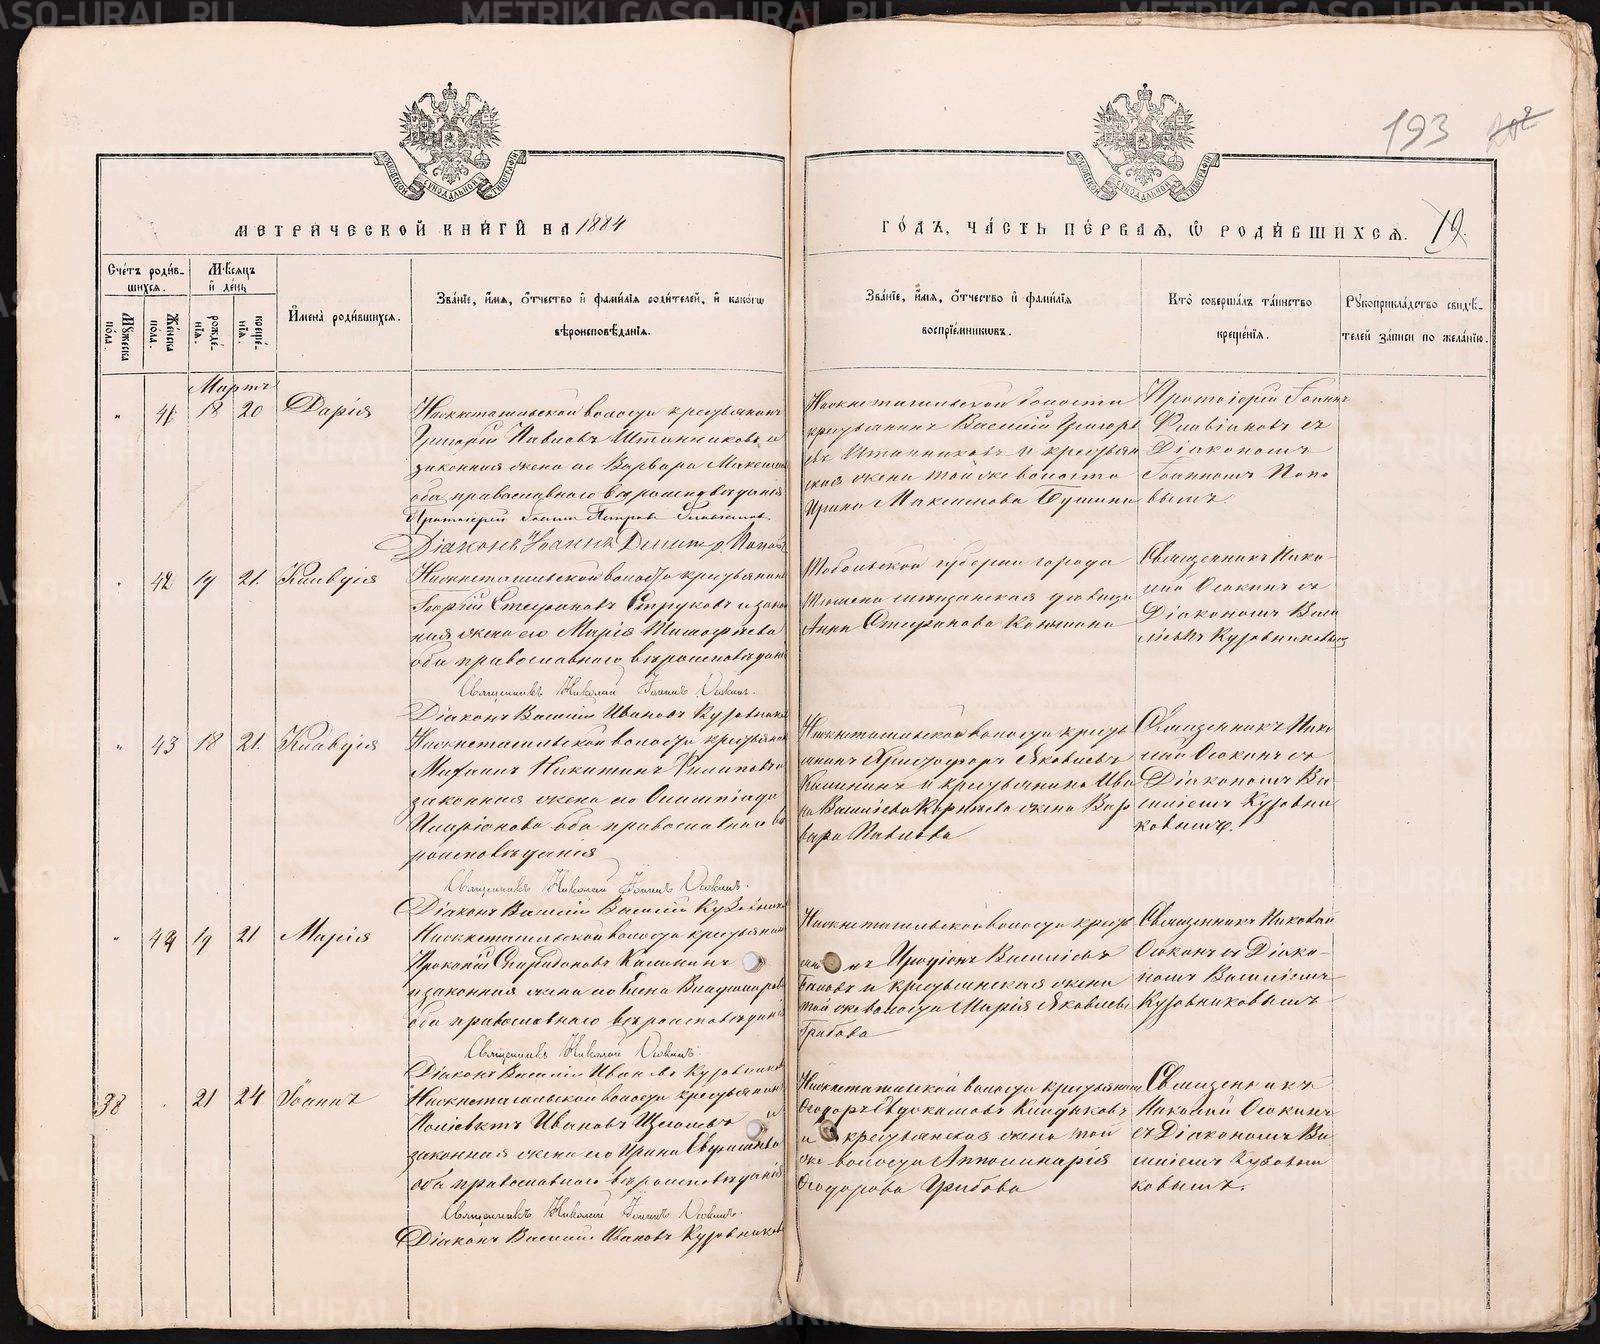 193
МОСКОВСКОЙ СѴНОДАЛЬНОЙ ТИПОГРАФІИ
МОСКОВСКОЙ СѴНОДАЛЬНОЙ ТИПОГРАФІИ
МЕТРИЧЕСКОЙ КНИГИ НА 1884
ГОДЪ, ЧАСТЬ ПЕРВАЯ, Ѡ РОДИВШИХСЯ. 19.
Счетъ родив-
шихся.
Мѣсяцъ
и день
Мужеска пола.
Женска пола.
рожде-
нія.
креще-
нія.
Имена родившихся.
Званіе, имя, отчество и фамилія родителей, и какогѡ
вѣроисповѣданія.
Званіе, имя, отчество и фамилія
воспріемниковъ.
Кто совершалъ таинство
крещенія.
Рукоприкладство свидѣ-
телей записи по желанію.
Мартъ
" 41 18 20 Дарія
Нижнетагильской волости крестьянинъ
Григорій Павловъ Шпанчиковъ и
законная жена его Варвара Максим
оба православнаго вѣроисповѣданія
Протоіерей Іоаннъ Петровъ Флавіановъ
Діаконъ Іоаннъ Димитр. Поповъ
Нижнетагильской волости
крестьянинъ Василій Григорь
евъ и крестьян
ская жена той же волости
Ирина Максимова
Протоіерей Іоаннъ
Флавіановъ съ
Діакономъ
Іоанномъ Попо
вымъ.
42 19 21. Клавдія
Нижнетагильской волости крестьянинъ
Георгій Стефановъ Струковъ и закон
ная жена его Марія Тимофѣева
оба православнаго вѣроисповѣдан
Священникъ Николай Іоаннъ Осокинъ.
Діаконъ Василій Ивановъ Кузовников
Тобольской губерніи города
Тюмени мѣщанская дѣвица
Анна Стефанова
Священникъ Нико-
лай Осокинъ съ
Діакономъ Васи
ліемъ Кузовниковымъ
" 43 18 21. Клавдія
Нижнетагильской волости крестьянин
Никитинъ Филиповъ и
законная жена его Олимпіада
Иларіонова оба православнаго вѣ
роисповѣданія
Священникъ Николай Іоаннъ Осокинъ.
Діаконъ Василій
Нижнетагильской волости кресть
янинъ Христофоръ Яковлевъ
Калининъ и крестьянина Ива
на Васильева жена Вар
вара Павлова
Священникъ Нико
лай Осокинъ съ
Діакономъ Ва
силіемъ Кузовни
ковымъ.
" 44 19 21 Марія
Нижнетагильской волости крестьянин
Прокопій Калининъ
и законная жена его Елена Владиміров
оба православнаго вѣроисповѣдані
Священникъ Николай Осокинъ.
Діаконъ Василій Ивановъ Кузовников
Нижнетагильской волости кресть
Иродіонъ Васильевъ
и крестьянская жена
той же волости Марія Яковлева
Грибова
Священникъ Николай
Осокинъ съ Діако-
номъ Василіемъ
Кузовниковымъ
38 . 21 24 Іоаннъ
Нижнетагильской волости крестьянинъ
Ивановъ и
законная жена его Ирина
оба православнаго вѣроисповѣданія
Священникъ Николай Іоаннъ Осокинъ.
Діаконъ Василій Ивановъ Кузовников
Нижнетагильской волости крестьянинъ
Ѳеодоръ Евдокимовъ
и крестьянская жена той
же волости Апполинарія
Ѳеодорова
Священникъ
Николай Осокинъ
съ Діакономъ Ва
силіемъ Кузовни
ковымъ.
METRIKI.GASO-URAL.RU